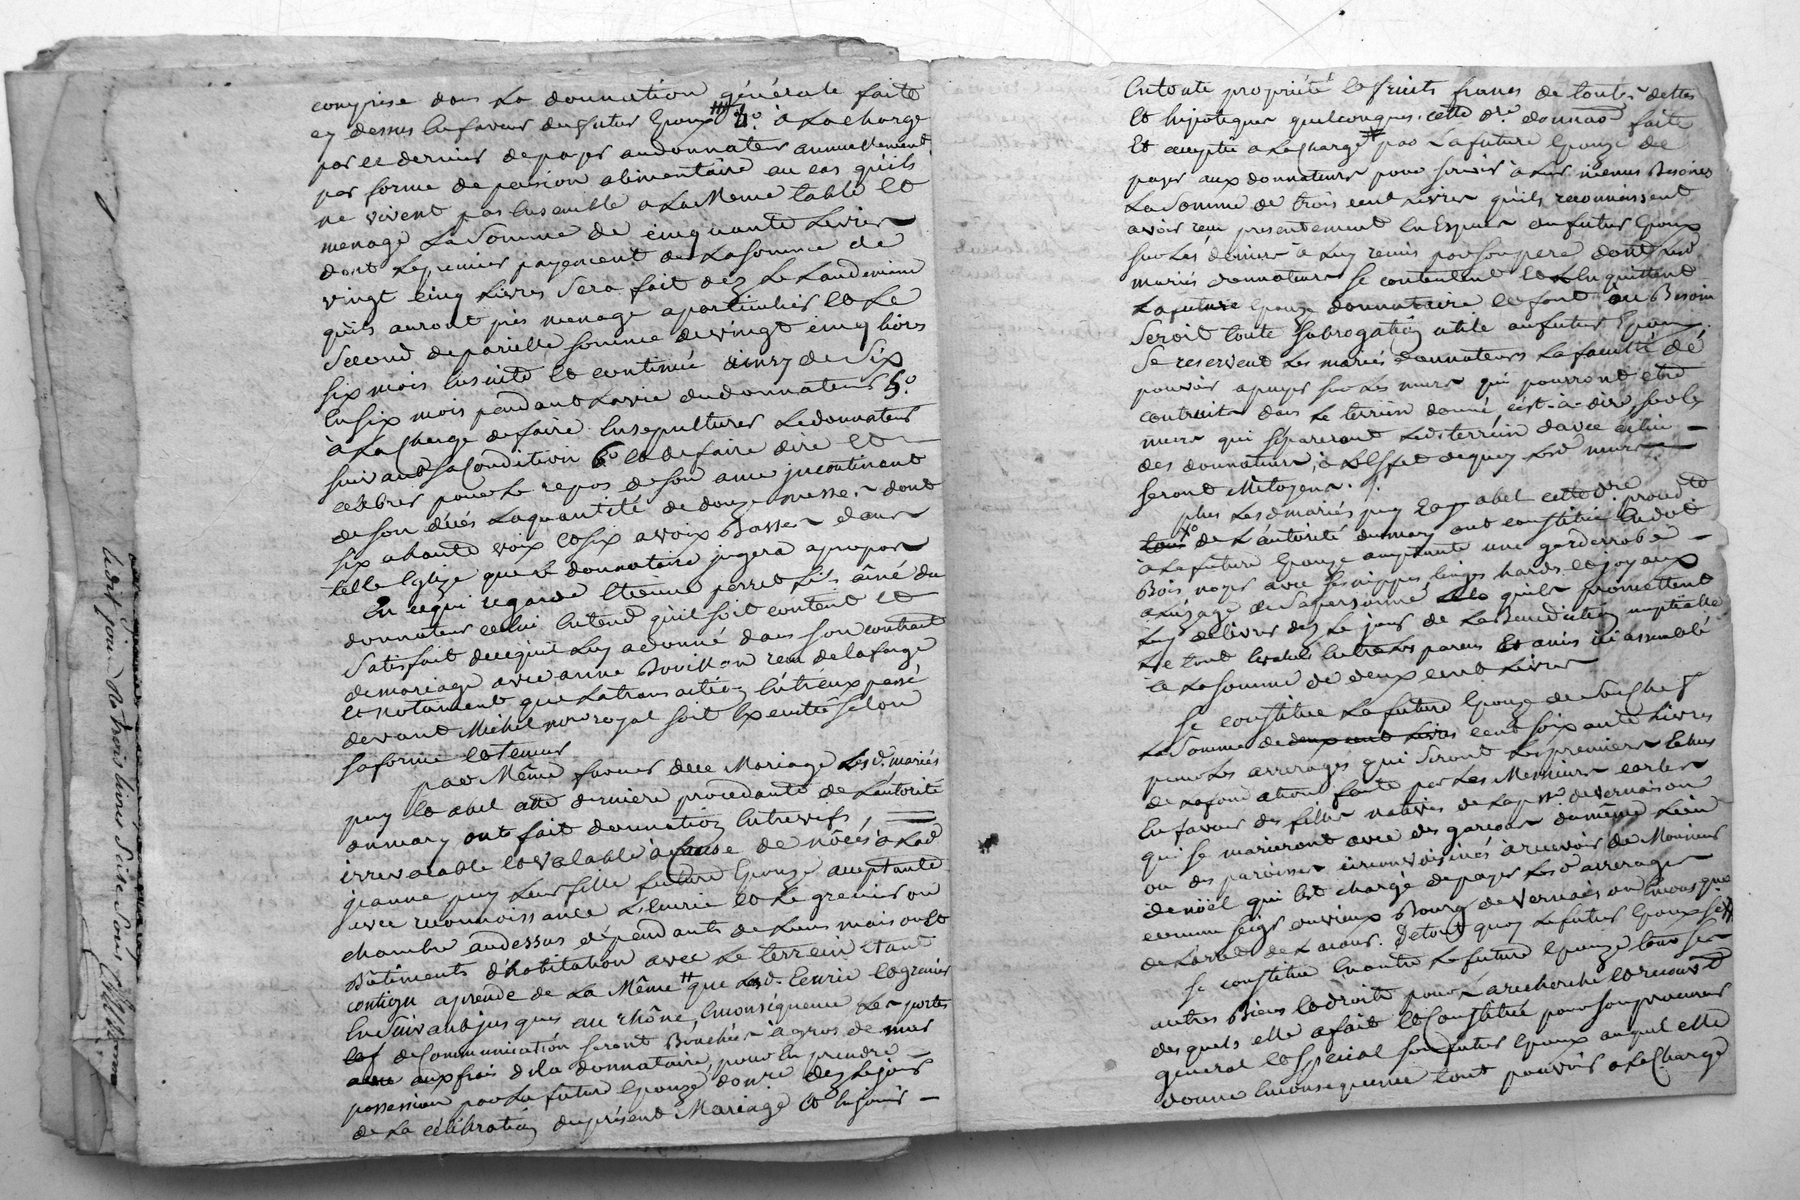 comprise dans la donnation générale faite
cy dessus en faveur du futur Epoux # 4.o à la charge
par ce dernier de payer au donnateur annuellement
par forme de pension alimentaire au cas qu'ils
ne vivent pas ensemble a la même table et
menage la somme de cinquante Livres
dont le premier payement de la somme de
vingt cinq Livres sera fait dez le landemain
qu'ils auront pris menage a particulier et le
second de pareille somme de vingt cinq livres
six mois ensuite et continué ainsy de six
en six mois pendant la vie du donnateur 5.o
à la charge de faire ensepulturer le donnateur
suivant sa Condition 6.o et de faire dire et
celebrer pour le repos de son ame incontinant
de son décés la quantité de douze messes dont
six a haute voix et six a voix Basses dans
telle Eglize que le donnataire jugera apropos
En ce qui regarde Etienne perret fils ainé du
donnateur celui entend qu'il soit content et
satisfait de ce qu'il luy a donné dans son contract
de mariage avec anne Bouillon reçu delafarge
et notament que la transaction entreux passé
devant Michel nore royal soit Executée selon
sa forme et teneur
par Même faveur dece Mariage les d. mariés
puy et abel cette derniere procédante de l'autorité
du mary ont fait donnation entrevifs,
irrevocable et valable à cause de nôces à lad
jeanne puy leur fille future Epouze acceptante
avec reconnoissance l'Ecurie et le grenier ou
chambre au dessus dépendants de leurs maison et
Bâtiments d'habitation avec le terrein Etant
contigu a prendre de la Même # que lesd. Ecurie et grenier
Ensuivant jusques au rhône, en conséquence les portes
de Communication seront Bouchées à gros de mur
aux frais de la donnataire, pour En prendre
possession par la future Epouze, donné dez le jour
de la célébration du présent Mariage et En jouir
En toute propriété et fruits francs de toutes dettes
et hipoteques quelconques. cette dre donnaon faite
et acceptée a la charge # par la future Epouze de
payer aux donnateurs pour servir à leur menus Besoins
la somme de trois cent Livres qu'ils reconnoissent
avoir reçu presentement en Especes du futur Epoux
sur les deniers à luy remis par son pere dont lesd
mariés donnateurs se contentent et en quittent
la future Epouze donnataire et font au Besoin
seroit toute subrogation utile au futur Epoux.
Se reservent les mariés donnateurs la faculté de
pouvoir apuyer sur les murs qui pourront etre
contruits dans le terrein donné, c'est-à-dire, sur les
murs qui sépareront led. terrein davec celui
des donnateurs, à l'Effet de quoy lesd murs
seront Mitoyens.
plus lesd mariés puy et abel cette dre procédte
de l'autorité du mary ont constitué En dot
à la future Epouze acceptante une garderobe
Bois noyer avec ses nippes, linges hards et joyaux
a l'uzage de sa personne qu'ils promettent
luy délivrer dez le jour de la Benediction nuptialle
le tout Evalué Entre les parens et amis ici assemblé
à la somme de deux cent Livres
Se constitue la future Epouze de son Chef
la somme de deux cent Livres cent soixante Livres
pour les arrerages qui seront les premiers Echus
de la fondation faite par les Messieurs
En faveur des filles natives de la psse de vernaison
qui se marieront avec des garçons du même Lieu
ou des paroisses circonvoisines à recevoir de Monsieur
de nöel qui Est chargé de payer lesd arrerages
comme seigr du vieux Bourg de Vernaison
de l'arbre de la cour. De tout quoy le futur Epoux
se constitue En outre la future Epouze tous ses
autres Biens et droits pour la recherche et recouvt
desquels elle a fait et Constitué pour son procureur
général et spécial son futur Epoux auquel elle
donne En consequence tout pouvoir a la Charge